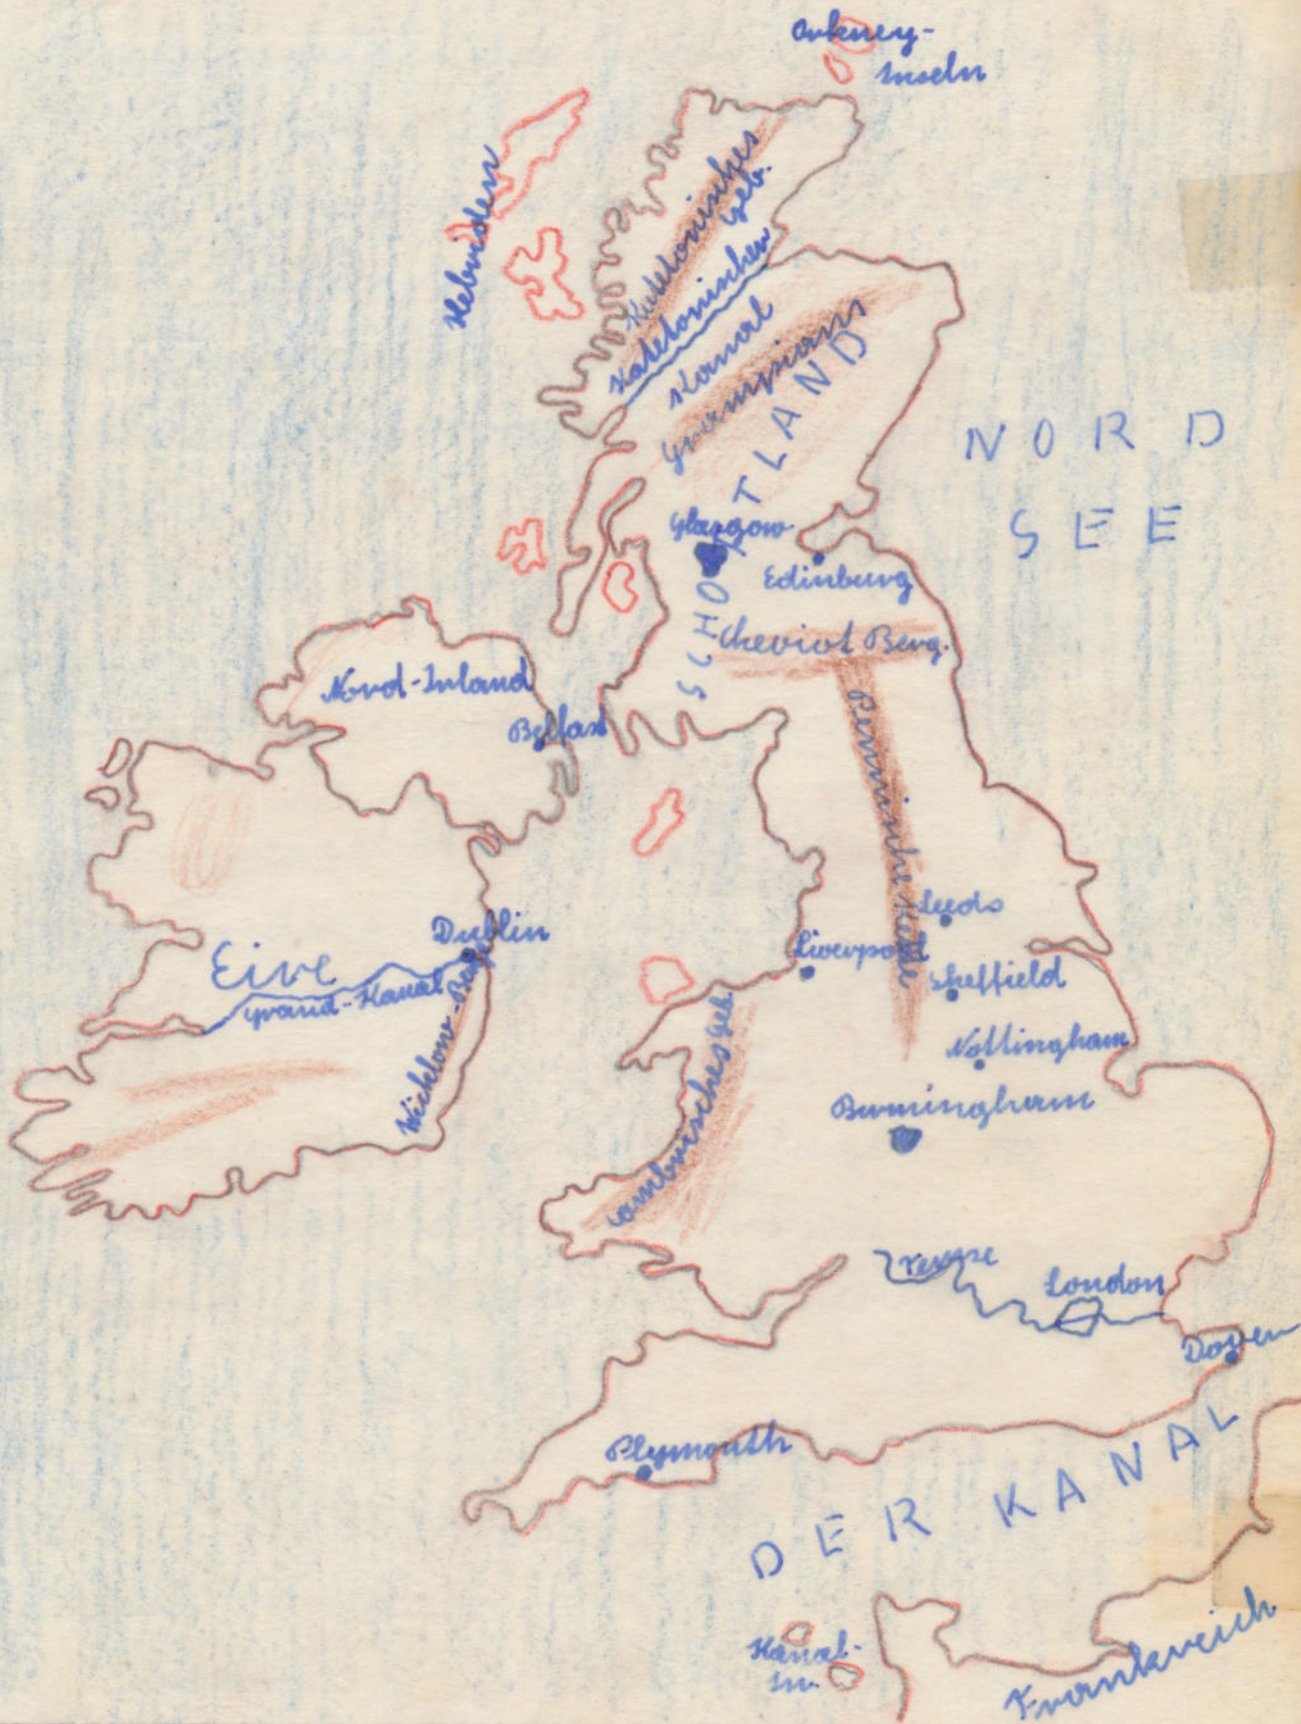 Orkney-
Inseln
Hebriden
Kaledonisches
Geb.
Kaledonischer
Kanal
Grampians
SCHOTTLAND
NORD
SEE
Glasgow
Edinburg
Cheviot Berg.
Nord-Irland
Belfast
Penninische Kette
Leeds
Liverpool
Sheffield
Dublin
Eire
Grand-Kanal
Wicklow-Berge
Nottingham
Birmingham
Cambrisches Geb.
Temse
London
Dover
Plymouth
DER KANAL
Kanal-
In.
Frankreich